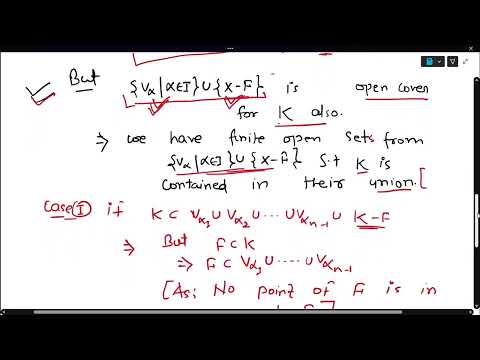 But {Vα|α∈I}∪{X-F} is open cover
for K also.
⇒ we have finite open sets from
{Vα|α∈I}∪{X-F} s.t K is
contained in their union.[
Case① if K⊂ Vα₁∪Vα₂∪⋯∪Vαₙ₋₁∪ K-F
⇒ But F⊂K
⇒ F⊂Vα₁∪⋯∪Vαₙ₋₁
[As: No point of F is in